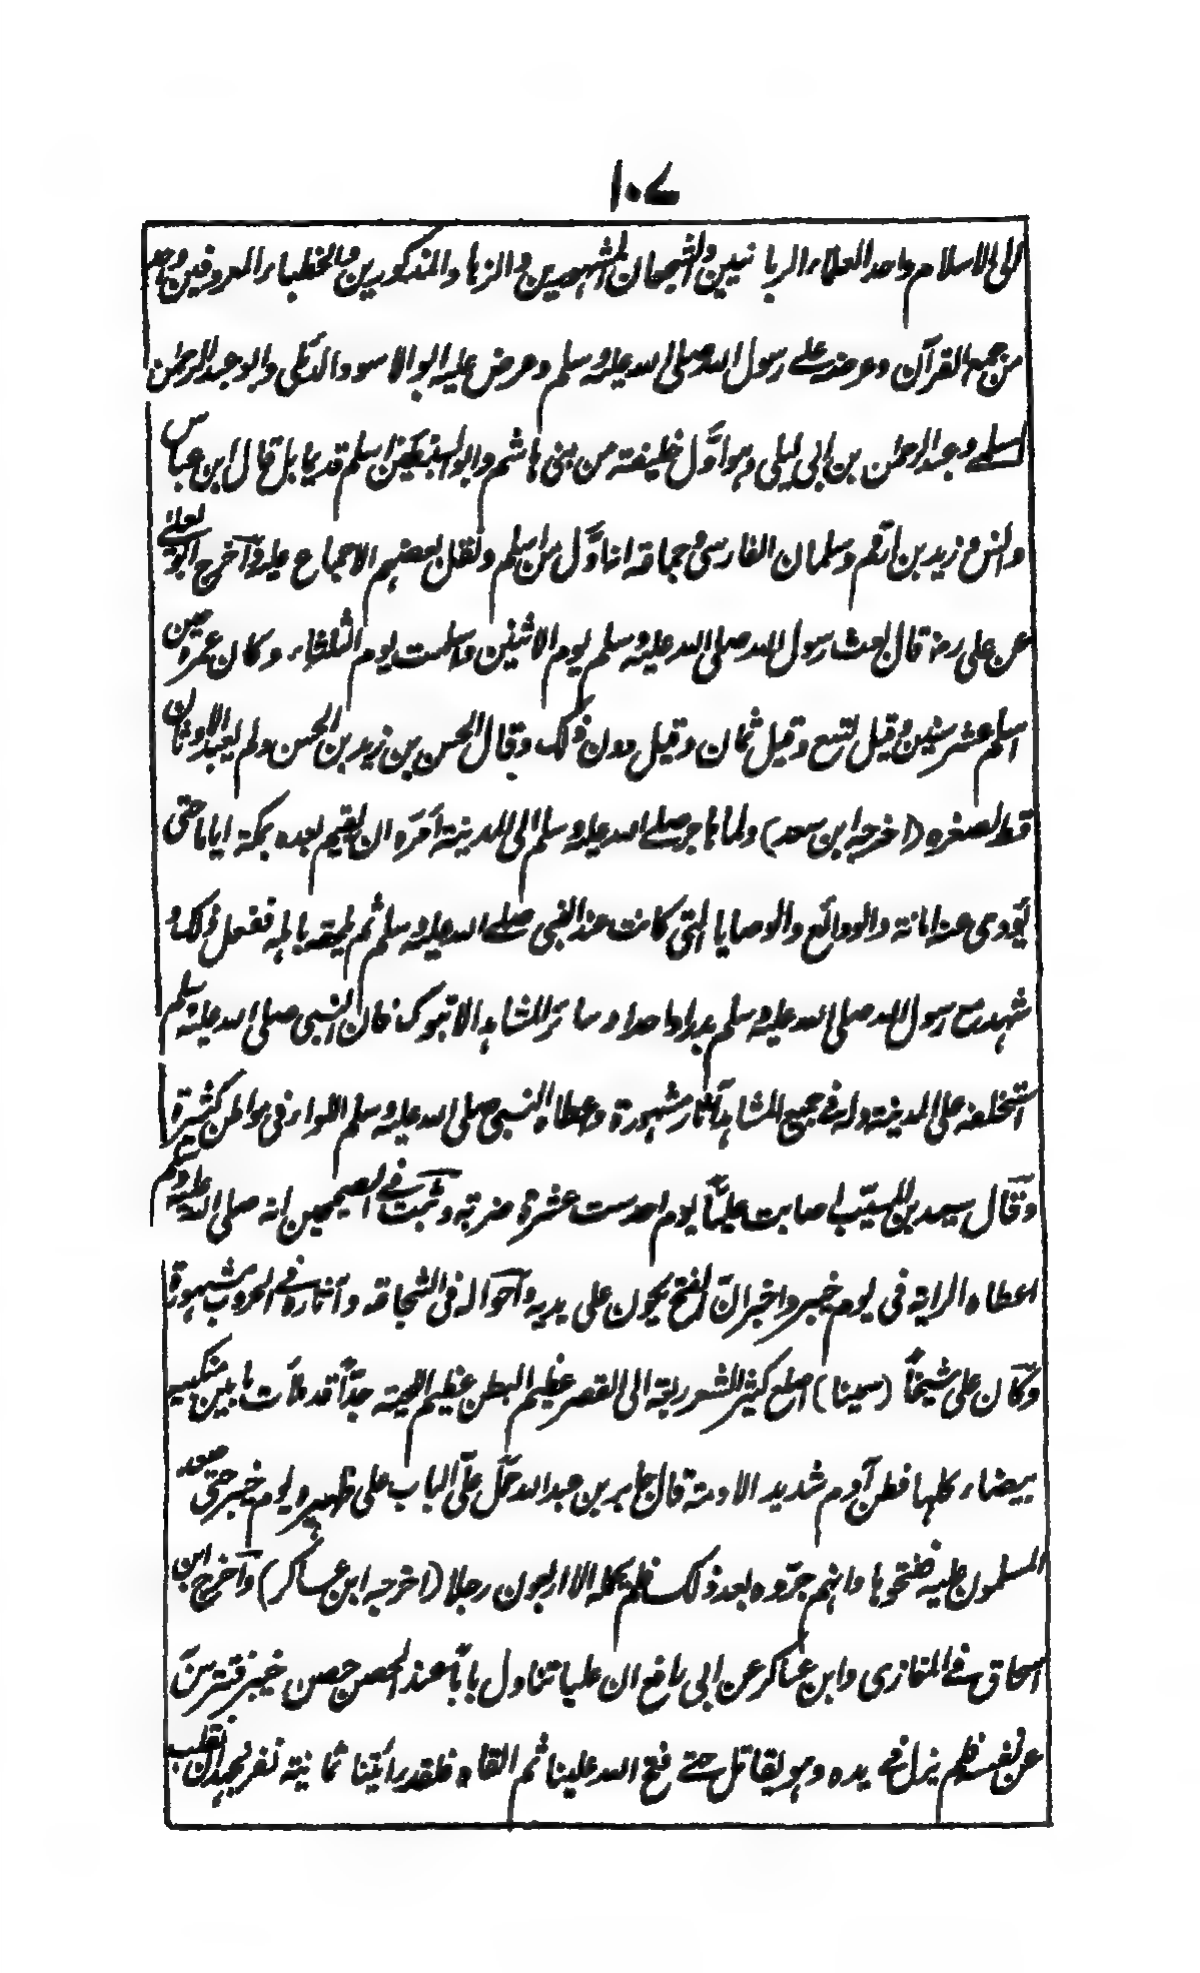 ١٠٧
الى الاسلام واحد العلماء الربانيين والشجعان المشهورين والزهاد المذكورين والخطباء المعروفين واحد
من جمع القرآن وعرضه على رسول الله صلى الله عليه وسلم وعرض عليه ابو الاسود الدئلى وابو عبد الرحمن
السلمے وعبد الرحمن بن ابى ليلى وهو اوّل خليفته من بنى هاشم وابو السبطين اسلم قديما بل قال ابن عباس
وانس وزيد بن ارقم وسلمان الفارسى وجماعة انه اوّل من اسلم ونقل بعضهم الاجماع عليه واخرج ابو يعلے
عن على رضه قال بعث رسول الله صلى الله عليه وسلم يوم الاثنين واسلمت يوم الثلثاء وكان عمره حين
اسلم عشر سنين وقيل تسع وقيل ثمان وقيل دون ذلك وقال الحسن بن زيد بن الحسن ولم يعبد الاوثان
قط لصغره (اخرجه ابن سعد) ولما هاجر صلے الله عليه وسلم الى المدينة اَمَرَه ان يقيم بعده بمكة اياما حتى
يؤدى عنه امانة والودائع والوصايا التى كانت عند النبى صلے الله عليه وسلم ثم يلحقه باهله ففعل ذلك و
شهد مع رسول الله صلى الله عليه وسلم بدرا واحدا وسائر المشاهد الا تبوك فان النبى صلى الله عليه وسلم
استخلفه على المدينة وله فے جميع المشاهد آثار مشهورة واعطاه النبى صلى الله عليه وسلم اللواء فى مواطن كثيرة
وقال سعيد بن المسيّب اصابت عليّا يوم احد ست عشرة ضربة وثبت فے الصحيحين انه صلى الله عليه وسلم
اعطاه الراية فى يوم خيبر واخبر ان الفتح يكون على يديه واحواله فى الشجاعة وآثاره فے الحروب مشهورة
وكان على شيخًا (سمينا) اصلع كثير الشعر ربعة الى القصر عظيم البطن عظيم اللحية جدًّا قد ملأت ما بين منكبيه
بيضاء كلها قطن آدم شديد الادمة قال جابر بن عبد الله حَمَل علىّ الباب على ظهره يوم خيبر حتى صعد
المسلمون عليه ففتحوها وانهم جرّوه بعد ذلك فلم يحمله الا اربعون رجلا (اخرجه ابن عساكر) واخرج ابن
اسحاق فے المغازى وابن عساكر عن ابى رافع ان عليا تناول بابا عند الحصن حصن خيبر فتترس
عن نفسه فلم يزل فے يده وهو يقاتل حتے فتح الله علينا ثم القاه فلقد رأيتنا ثمانية نفر نجهد ان نقلب